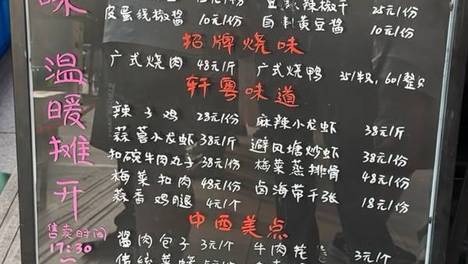 味
温
暖
摊
开
售卖时间
17:30
皮蛋线椒酱 10元/份
辣椒干 25元/份
自制黄豆酱 10元/份
招牌烧味
广式烧肉 48元/斤 广式烧鸭 35/半只，60/整只
轩粤味道
辣子鸡 28元/份 麻辣小龙虾 38元/斤
蒜蓉小龙虾 38元/斤 避风塘炒虾 38元/份
扣碗牛肉丸子 38元/份 梅菜蒸排骨 48元/份
梅菜扣肉 48元/份 卤海带千张 18元/份
蒜香鸡腿 4元/个
中西美点
酱肉包子 3元/个 牛肉 3元/个
传统菜